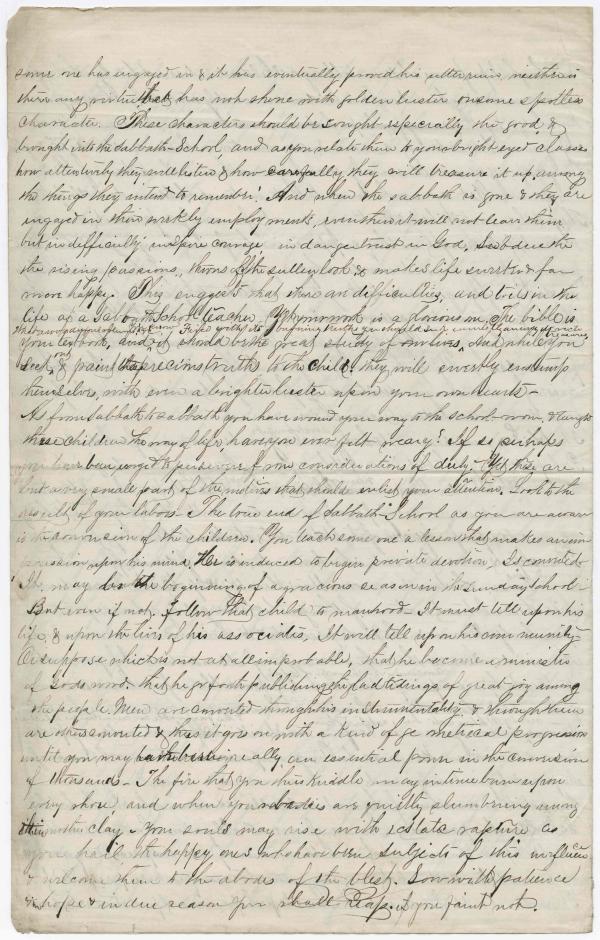 some one has engaged in & it has eventually proved his utter ruin, neither is
there any virtue that has not shone with golden luster on some spotless
character. These characters should be sought especially the good, &
brought into the Sabbath-School, and as you relate them to your bright eyed classes
how attentively they will listen & how carefully they will treasure it up, among
the things they intend to remember! And when the sabbath is gone & they are
engaged in their weekly employments, even then it will not leave them
but in difficulty inspire courage in danger trust in God, Subdue the
the rising passions, the sullen look & makes life sweeter & far
more happy. They suggest that there are difficulties, and toils in the
life of a Sabbath School teacher. Your work is a glorious one, The bible is
your text book, and it should be the great study of ourselves, And while you
seek out & paint the precious truths to the child, they will surely enstamp
themselves, with even a brighter luster upon your own hearts—
As from Sabbath to Sabbath you have wound your way to the school-room, & taught
these children the way of life, have you ever felt weary? If so perhaps
you have been urged to persevere from considerations of duty. Yet these are
but a very small part of the motives that should enlist your attention, Look to the
results of your labors— The true end of Sabbath School as you are aware
is the conversion of the children. You teach some one a lesson that makes an im-
pression upon his mind. He is induced to begin private devotion, Is converted
It may be the beginning of a gracious season in the Sunday School—
But even if not, follow that child to manhood— It must tell upon his
life, & upon the lives of his associates, It will tell upon his community
Or suppose which is not at all improbable, that he become a minister
of Gods word. that he go forth publishing the glad tidings of great joy among
the people. Men are converted through his instrumentality & through them
are others converted & thus it goes on with a kind of geometrical progression
until you may really an essential power in the conversion
of thousands— The fire that you thus kindle may in time burn upon
every shore and when your bodies are quietly slumbering among
their mother clay— Your souls may rise with ecstatic rapture as
you hail the happy ones who have been subjects of this influence
& welcome them to the abodes of the blest. Sow with patience
& hope & in due season you shall reap, if you faint not.